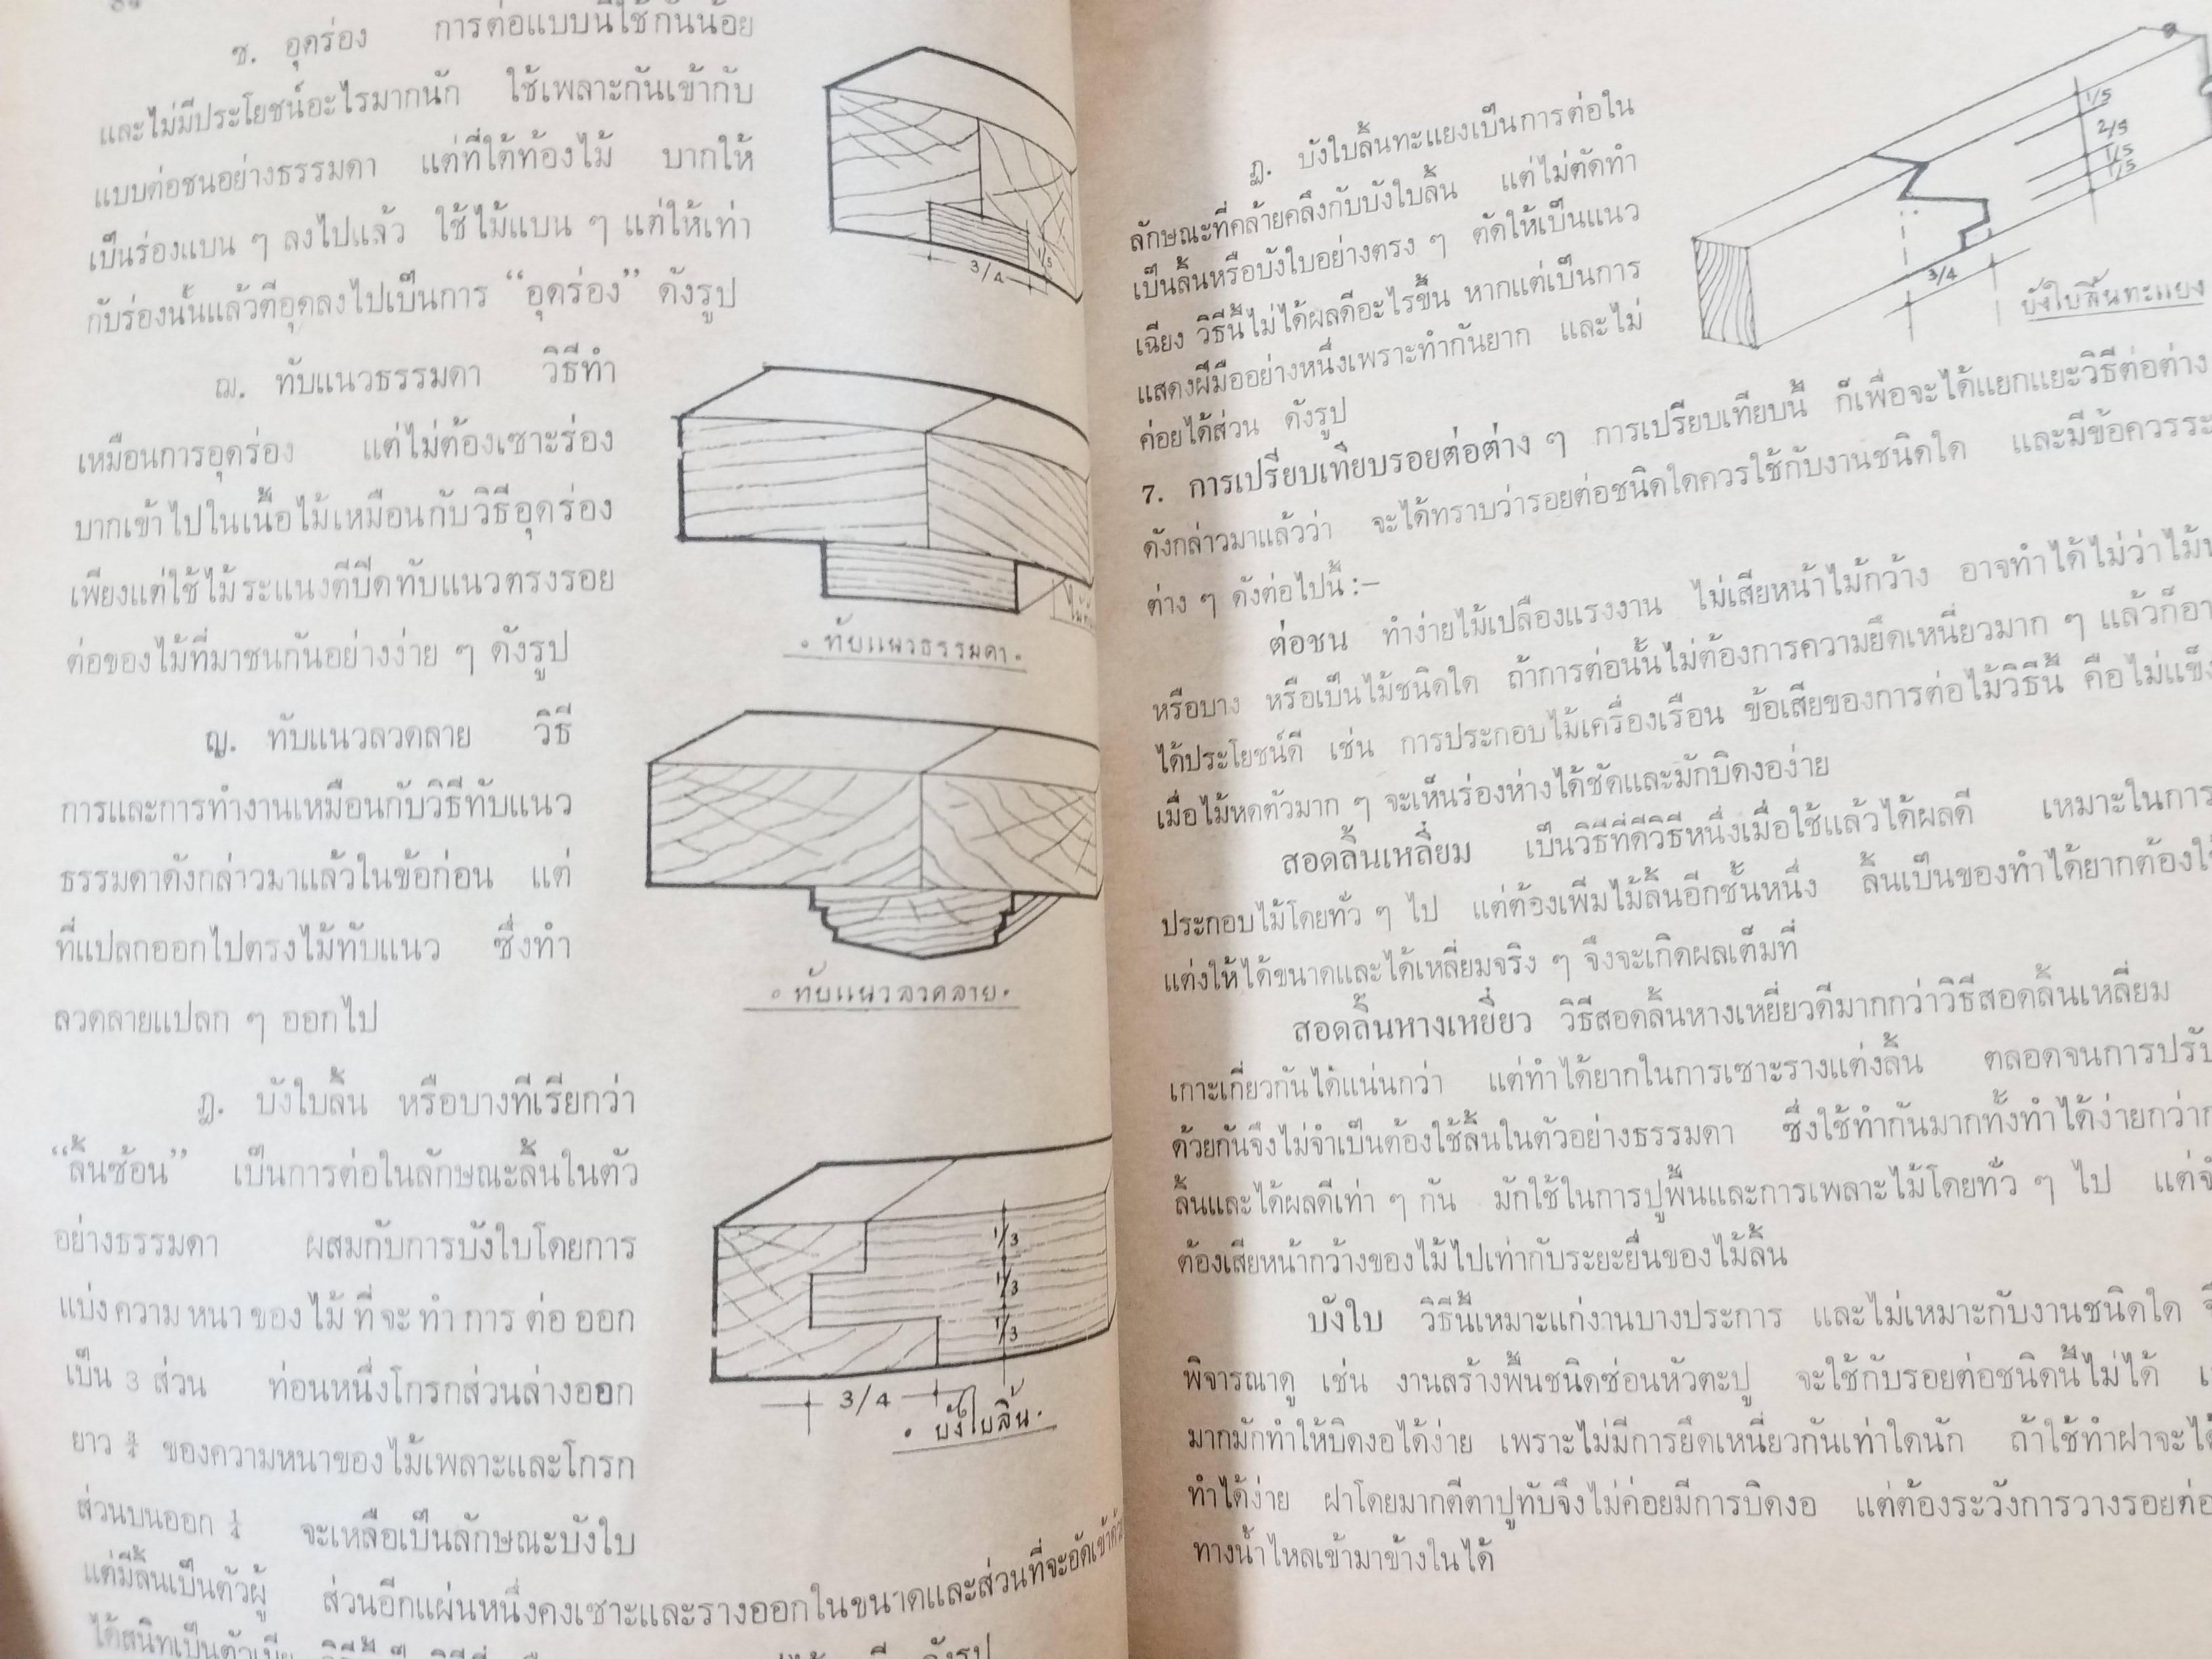 ซ. อุดร่อง การต่อแบบนี้ใช้กันน้อย
และไม่มีประโยชน์อะไรมากนัก ใช้เพลาะกันเข้ากับ
แบบต่อชนอย่างธรรมดา แต่ที่ใต้ท้องไม้ บากให้
เป็นร่องแบน ๆ ลงไปแล้ว ใช้ไม้แบน ๆ แต่ให้เท่า
กับร่องนั้นแล้วตีอุดลงไปเป็นการ “อุดร่อง” ดังรูป
3/4
1/5
ฌ. ทับแนวธรรมดา วิธีทำ
เหมือนการอุดร่อง แต่ไม่ต้องเซาะร่อง
บากเข้าไปในเนื้อไม้เหมือนกับวิธีอุดร่อง
เพียงแต่ใช้ไม้ระแนงตีปิดทับแนวตรงรอย
ต่อของไม้ที่มาชนกันอย่างง่าย ๆ ดังรูป
ทับแนวธรรมดา
ญ. ทับแนวลวดลาย วิธี
การและการทำงานเหมือนกับวิธีทับแนว
ธรรมดาดังกล่าวมาแล้วในข้อก่อน แต่
ที่แปลกออกไปตรงไม้ทับแนว ซึ่งทำ
ลวดลายแปลก ๆ ออกไป
ทับแนวลวดลาย
ฎ. บังใบลิ้น หรือบางทีเรียกว่า
“ลิ้นซ้อน” เป็นการต่อในลักษณะลิ้นในตัว
อย่างธรรมดา ผสมกับการบังใบโดยการ
แบ่งความหนาของไม้ที่จะทำการต่อออก
เป็น 3 ส่วน ท่อนหนึ่งโกรกส่วนล่างออก
ยาว ¾ ของความหนาของไม้เพลาะและโกรก
ส่วนบนออก จะเหลือเป็นลักษณะบังใบ
แต่มีลิ้นเป็นตัวผู้ ส่วนอีกแผ่นหนึ่งคงเซาะและรางออกในขนาดและส่วนที่จะอัดเข้า
ได้สนิทเป็นตัวเมีย ดังรูป
1/3
1/3
1/3
3/4
บังใบลิ้น
ฏ. บังใบลิ้นทะแยงเป็นการต่อใน
ลักษณะที่คล้ายคลึงกับบังใบลิ้น แต่ไม่ตัดทำ
เป็นลิ้นหรือบังใบอย่างตรง ๆ ตัดให้เป็นแนว
เฉียง วิธีนี้ไม่ได้ผลดีอะไรขึ้น หากแต่เป็นการ
แสดงฝีมืออย่างหนึ่งเพราะทำกันยาก และไม่
ค่อยได้ส่วน ดังรูป
1/5
2/5
1/5
1/5
3/4
บังใบลิ้นทะแยง
7. การเปรียบเทียบรอยต่อต่าง ๆ การเปรียบเทียบนี้ ก็เพื่อจะได้แยกแยะวิธีต่อต่าง
ดังกล่าวมาแล้วว่า จะได้ทราบว่ารอยต่อชนิดใดควรใช้กับงานชนิดใด และมีข้อควรระ
ต่าง ๆ ดังต่อไปนี้ :—
ต่อชน ทำง่ายไม้เปลืองแรงงาน ไม่เสียหน้าไม้กว้าง อาจทำได้ไม่ว่าไม้
หรือบาง หรือเป็นไม้ชนิดใด ถ้าการต่อนั้นไม่ต้องการความยึดเหนี่ยวมาก ๆ แล้วก็อา
ได้ประโยชน์ดี เช่น การประกอบไม้เครื่องเรือน ข้อเสียของการต่อไม้วิธีนี้ คือไม่แข็ง
เมื่อไม้หดตัวมาก ๆ จะเห็นร่องห่างได้ชัดและมักบิดงอง่าย
สอดลิ้นเหลี่ยม เป็นวิธีที่ดีวิธีหนึ่งเมื่อใช้แล้วได้ผลดี เหมาะในการ
ประกอบไม้โดยทั่ว ๆ ไป แต่ต้องเพิ่มไม้ลิ้นอีกชั้นหนึ่ง ลิ้นเป็นของทำได้ยากต้อง
แต่งให้ได้ขนาดและได้เหลี่ยมจริง ๆ จึงจะเกิดผลเต็มที่
สอดลิ้นหางเหยี่ยว วิธีสอดลิ้นหางเหยี่ยวดีมากกว่าวิธีสอดลิ้นเหลี่ยม
เกาะเกี่ยวกันได้แน่นกว่า แต่ทำได้ยากในการเซาะรางแต่งลิ้น ตลอดจนการปรับ
ด้วยกันจึงไม่จำเป็นต้องใช้ลิ้นในตัวอย่างธรรมดา ซึ่งใช้ทำกันมากทั้งทำได้ง่ายกว่า
ลิ้นและได้ผลดีเท่า ๆ กัน มักใช้ในการปูพื้นและการเพลาะไม้โดยทั่ว ๆ ไป แต่
ต้องเสียหน้ากว้างของไม้ไปเท่ากับระยะยื่นของไม้ลิ้น
บังใบ วิธีนี้เหมาะแก่งานบางประการ และไม่เหมาะกับงานชนิดใด
พิจารณาดู เช่น งานสร้างพื้นชนิดซ่อนหัวตะปู จะใช้กับรอยต่อชนิดนี้ไม่ได้
มากมักทำให้บิดงอได้ง่าย เพราะไม่มีการยึดเหนี่ยวกันเท่าใดนัก ถ้าใช้ทำฝาจะได้
ทำได้ง่าย ฝาโดยมากตีตาปูทับจึงไม่ค่อยมีการบิดงอ แต่ต้องระวังการวางรอยต่อ
ทางน้ำไหลเข้ามาข้างในได้